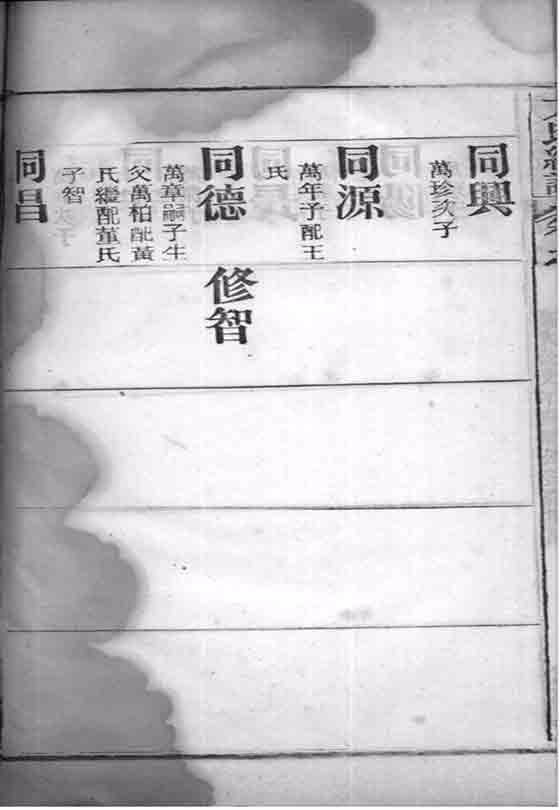 同興
萬珍次子
同源
萬年子配王
氏
同德
萬章嗣子生
父萬柏配黃
氏繼配董氏
子智
同昌
修智